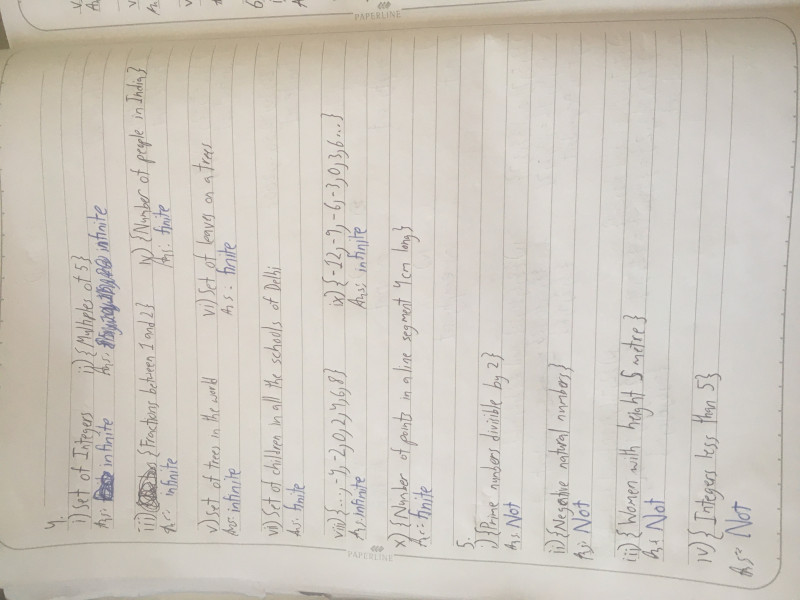 PAPERLINE
4.
i) Set of Integers ii) {Multiples of 5}
Ans: infinite Ans: infinite
iii) {Fractions between 1 and 2} iv) {Number of people in India}
Ans: infinite Ans: finite
v) Set of trees in the world vi) Set of leaves on a trees
Ans: infinite Ans: finite
vii) Set of children in all the schools of Delhi
Ans: finite
viii) {..., -4, -2, 0, 2, 4, 6, 8} ix) {-12, -9, -6, -3, 0, 3, 6 ...}
Ans: infinite Ans: infinite
x) {Number of points in a line segment 4cm long}
Ans: finite
5.
i) {Prime numbers divisible by 2}
Ans Not
ii) {Negative natural numbers}
Ans: Not
iii) {Women with height 5 metre}
Ans: Not
iv) {Integers less than 5}
Ans: Not
PAPERLINE